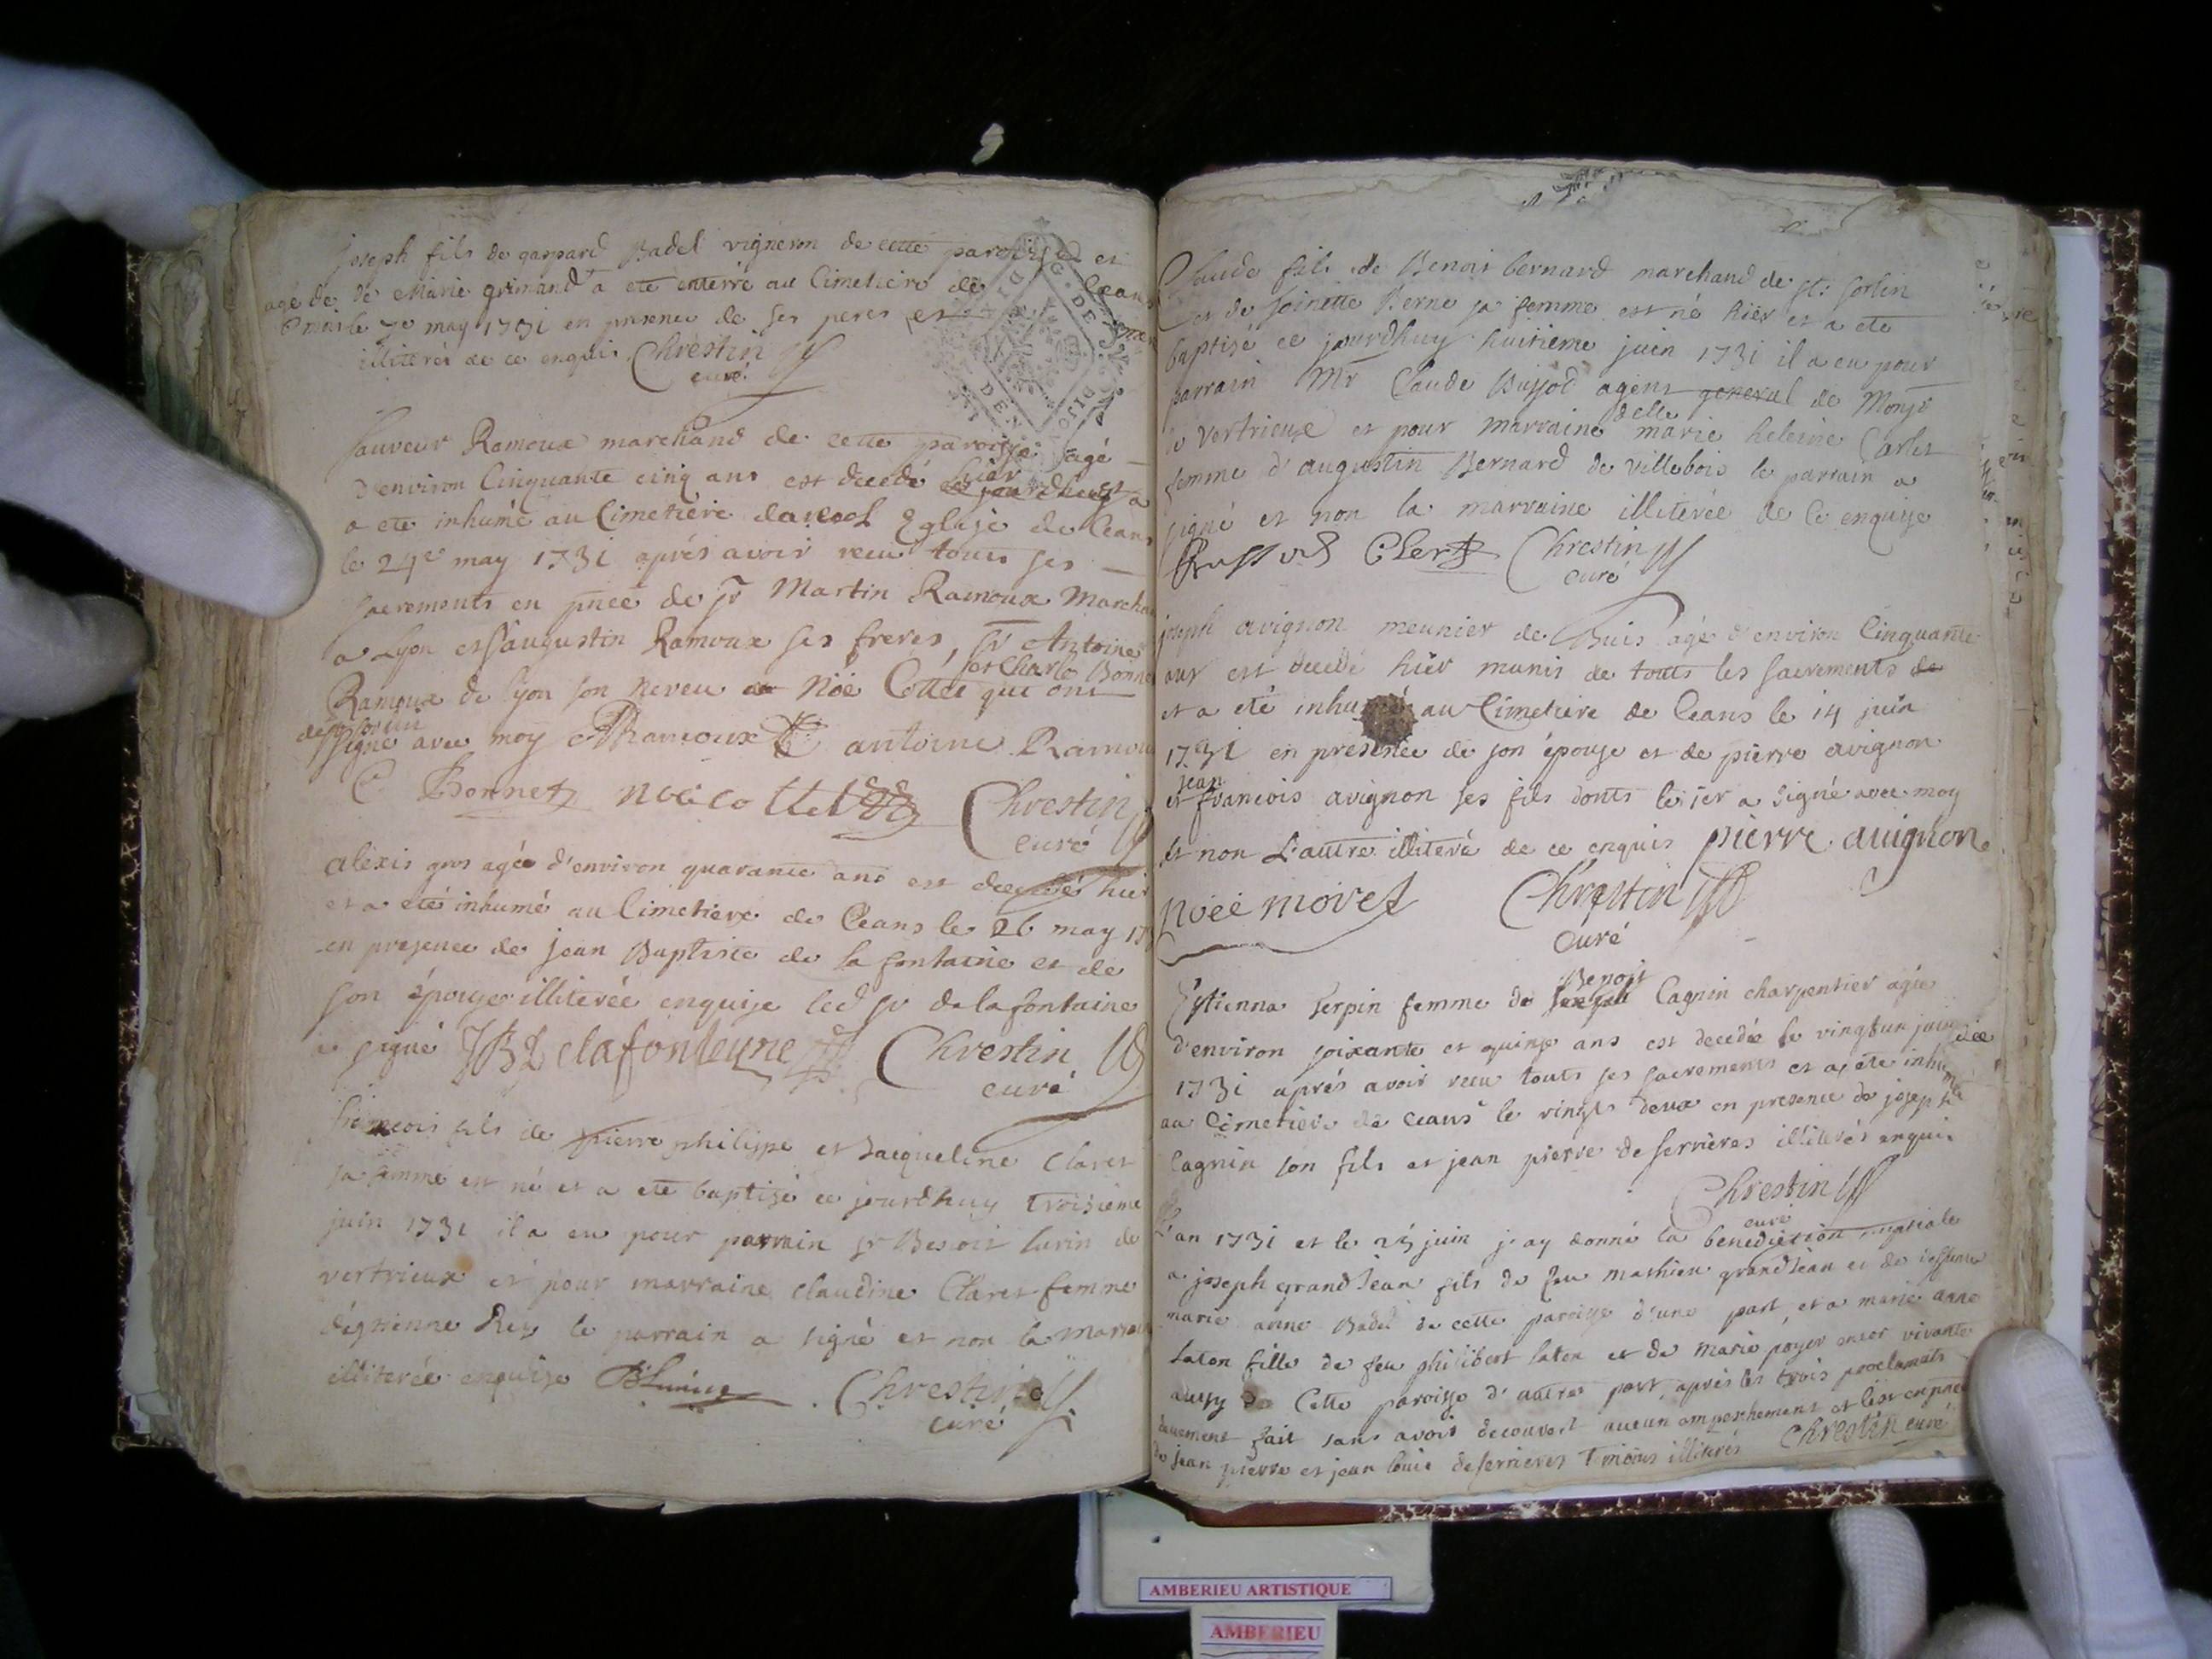 joseph fils de gaspard Badel vigneron de cette paroisse et
de Marie grimand a eté enterré au Cimetiere de Ceans
le 7e may 1731 en presence de ses peres et
illiterés de ce enquis Chrestin
curé
Sauveur Ramoux marchand de cette paroisse agé
d'environ Cinquante cinq ans est decedé hier
a eté inhumé au Cimetiere Eglise de Ceans
le 24e may 1731 aprés avoir receu touts ses
sacrements en pnce de sr Martin Ramoux Marcha
a Lyon et augustin Ramoux ses freres, sr Antoine
Ramoux de Lyon son neveu Nöé Cottet et Charle Bonne qui ont
signé avec moy Ramoux antoine Ramou
C Bonnet noé collet Chrestin
curé
alexis gros agée d'environ quarante ans est decedé hier
et a eté inhumé au Cimetiere de Ceans le 26 may 173
en presence de jean Baptiste de la fontaine et de
son épouse illiterée enquise led sr de la fontaine
a signé JB Delafonteyne Chrestin
curé
francois fils de pierre philippe et Jacqueline Claret
sa femme est né et a eté baptisé ce jourdhuy troisieme
juin 1731 il a eu pour parrain sr Benoit Lurin de
vertrieux et pour marraine claudine Claret femme
d'estienne Rey le parrain a signé et non la marrain
illiterée enquise Chrestin
curé
Claude fils de Benoit bernard marchand de st Sorlin
et de Berne sa femme est né hier et a eté
baptisé ce jourdhuy huitieme juin 1731 il a eu pour
parrain Mr Claude agent general de Monsr
de Vertrieux et pour marraine delle marie heleine Carlet
femme d'augustin Bernard de Villebois le parrain a
signé et non la marraine illiterée de ce enquise
Chrestin
curé
joseph avignon meunier de Buis agé d'environ Cinquante
ans est decedé hier munis de touts les sacrements de
et a eté inhumé au Cimetiere de Ceans le 14 juin
1731 en presence de son épouse et de pierre avignon
et jean francois avignon ses fils donts le 1er a signé avec moy
et non L'autre illiteré de ce enquis pierre avignon
Noéé moret Chrestin
Curé
Estienna serpin femme de Benoit Cagnin charpentier agée
d'environ soixante et quinze ans est decedée le vingtun juin
1731 aprés avoir receu touts ses sacrements et a été inhumée
au Cimetiere de ceans le vingt deux en presence de joseph
Cagnin son fils et jean pierre de serrieres illiterés enquis
Chrestin
curé
L'an 1731 et le 25 juin j'ay donné la benediction nuptiale
a joseph grandJean fils de feu mathieu grandJean et de
marie anne Badel de cette paroisse d'une part, et a marie anne
Laton fille de feu philibert Laton et de marie payer encor vivante
aussy de Cette paroisse d'autre part, aprés les trois proclamats
duement fait sans avoir decouvert aucun empeschement et
de jean pierre et jean louis deserrieres Temoins illiterés Chrestin curé
AMBERIEU ARTISTIQUE
AMBERIEU